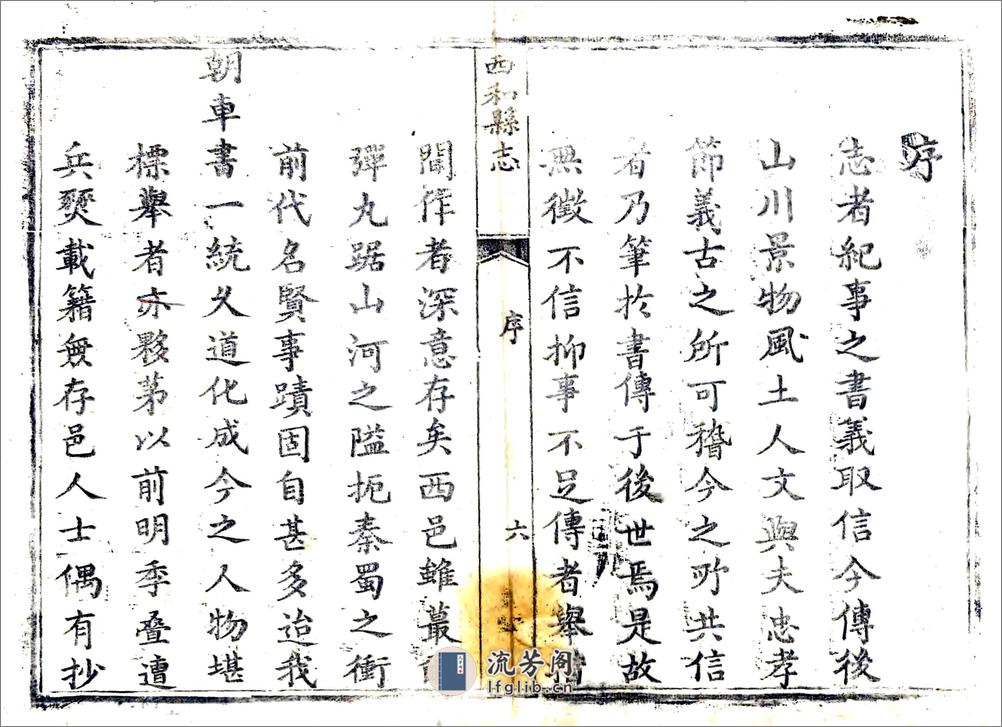 序
志者紀事之書義取信今傳後
山川景物風土人文與夫忠孝
節義古之所可稽今之所共信
者乃筆於書傳于後世焉是故
無徵不信抑事不足傳者舉
西和縣志
序
六
闕作者深意存矣西邑雖蕞
彈丸踞山河之隘扼秦蜀之衝
前代名賢事蹟固自甚多迨我
朝車書一統久道化成今之人物堪
標舉者亦夥苐以前明季疊遭
兵燹載籍無存邑人士偶有抄
流芳阁
lfglib.cn